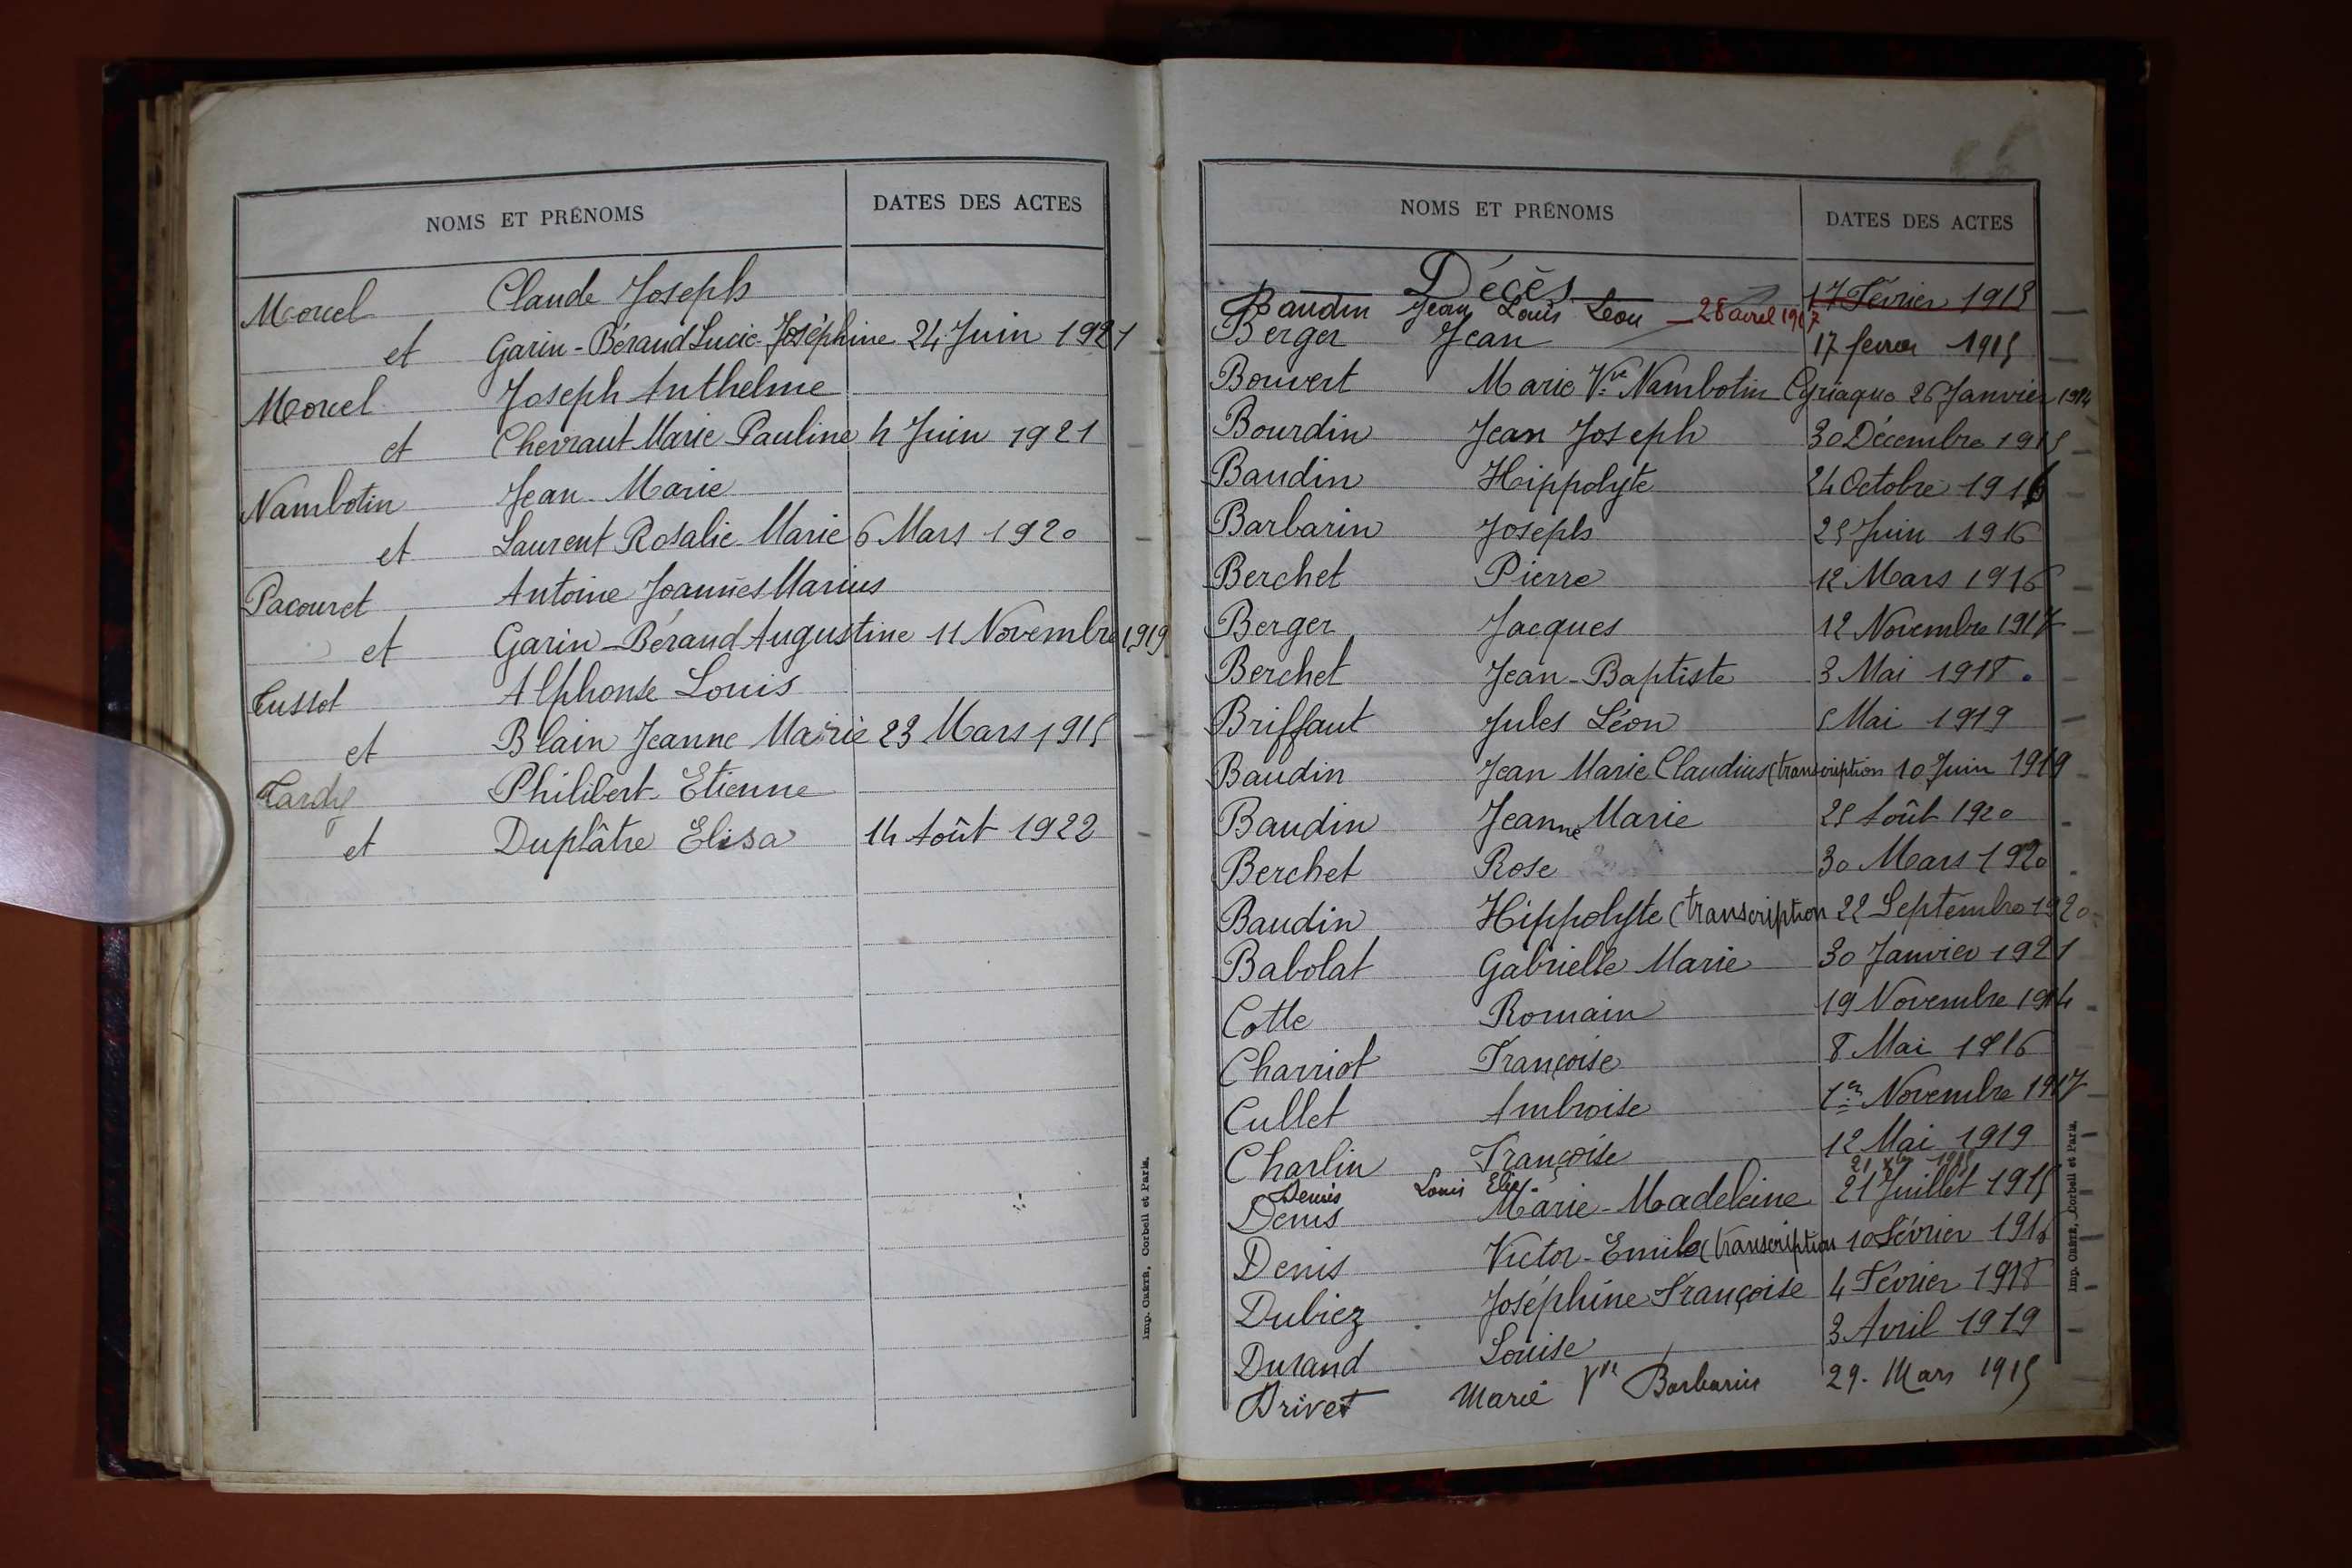 NOMS ET PRÉNOMS DATES DES ACTES
Morcel Claude Joseph
et Garin-Béraud Lucie Joséphine 24 Juin 1921
Morcel Joseph Anthelme
et Chevraut Marie Pauline 4 Juin 1921
Nambotin Jean-Marie
et Laurent Rosalie-Marie 6 Mars 1920
Pacouret Antoine Joannès Marius
et Garin-Béraud Augustine 11 Novembre 1919
Cussot Alphonse Louis
et Blain Jeanne Marie 23 Mars 1915
Tardy Philibert-Etienne
et Duplâtre Elisa 14 Août 1922
Imp. CRÉTÉ, Corbeil et Paris.
NOMS ET PRÉNOMS DATES DES ACTES
Décès 17 Février 1915
Baudin Jean Louis Leon — 28 avril 1917
Berger Jean 17 fevrier 1915
Bouvert Marie Vve Nambotin Cyriaque 26 Janvier 1914
Bourdin Jean Joseph 30 Décembre 1915
Baudin Hippolyte 24 Octobre 1916
Barbarin Joseph 25 Juin 1916
Berchet Pierre 12 Mars 1916
Berger Jacques 12 Novembre 1917
Berchet Jean-Baptiste 3 Mai 1918
Briffaut Jules Léon 5 Mai 1919
Baudin Jean Marie Claudius (transcription 10 Juin 1919
Baudin Jeanne Marie 25 Août 1920
Berchet Rose 30 Mars 1920
Baudin Hippolyte (transcription 22 Septembre 1920
Babolat Gabrielle Marie 30 Janvier 1921
Cotte Romain 19 Novembre 1914
Charriot Françoise 8 Mai 1916
Cullet Ambroise 1er Novembre 1917
Charlin Françoise 12 Mai 1919
Denis Louis Elie 21 Xbre 1915
Denis Marie-Madeleine 21 Juillet 1915
Denis Victor-Emile (transcription 10 Février 1916
Dubiez Joséphine Françoise 4 Février 1918
Durand Louise 3 Avril 1919
Drivet Marie Vve Barbarin 29. Mars 1915
Imp. CRÉTÉ, Corbeil et Paris.